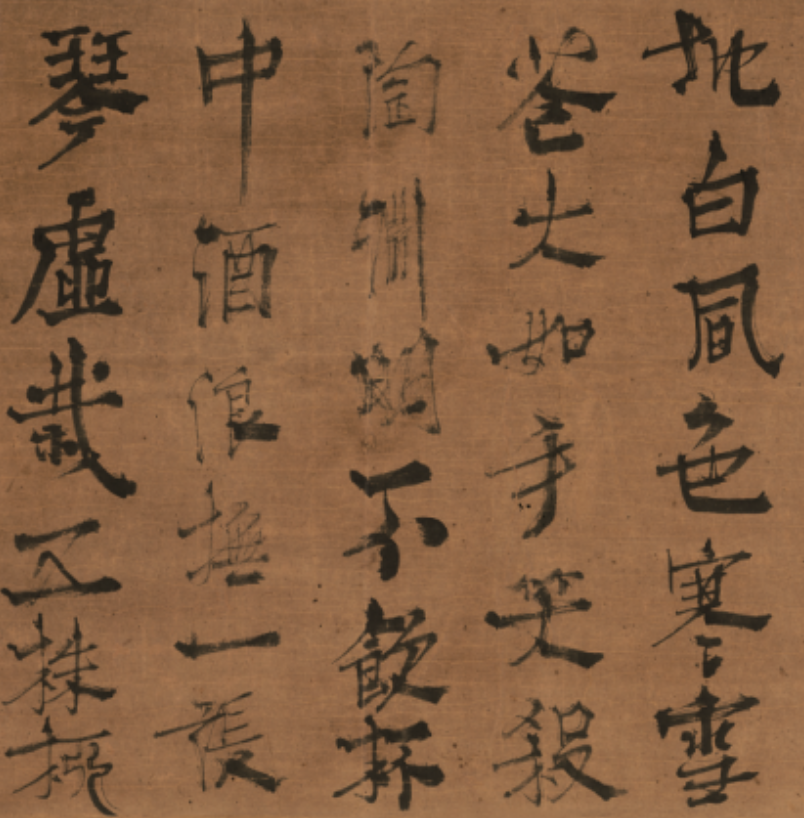 地白風色寒雪
花大如手笑殺
陶淵明不飲杯
中酒浪撫一張
琴虛栽五株柳